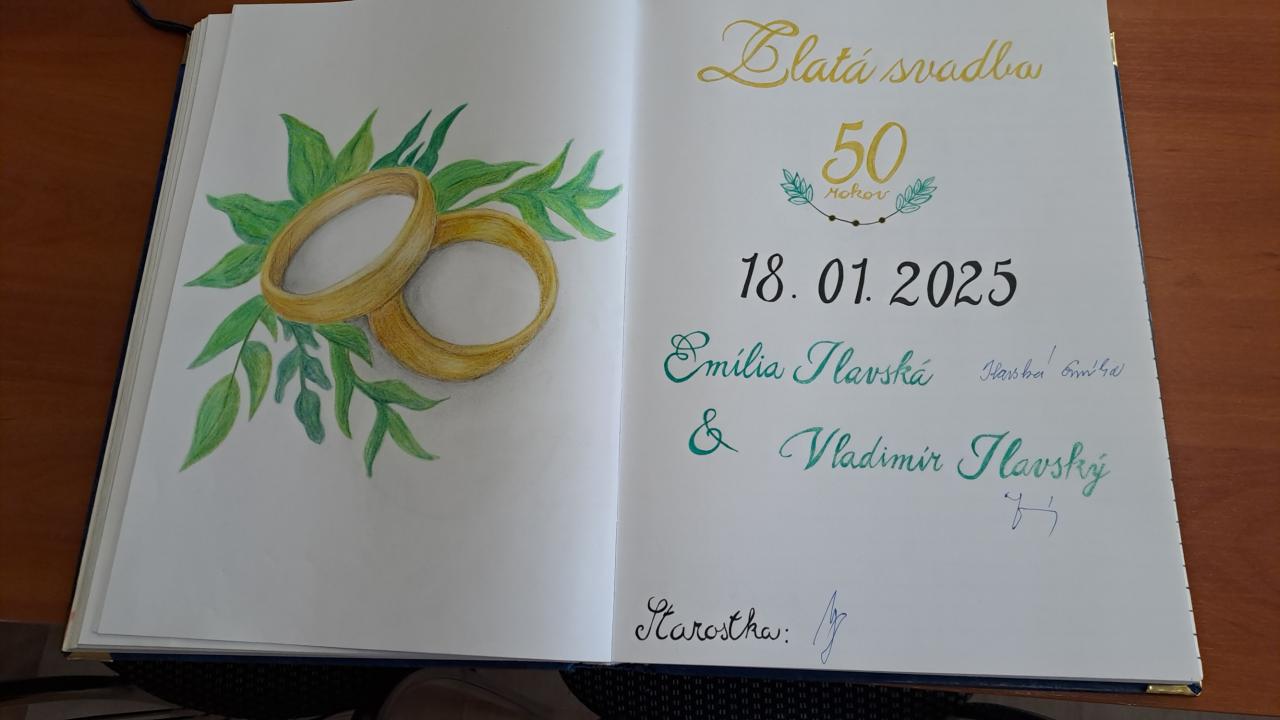 Zlatá svadba
50
rokov
18. 01. 2025
Emília Ilavská Ilavská Emília
& Vladimír Ilavský
Starostka: